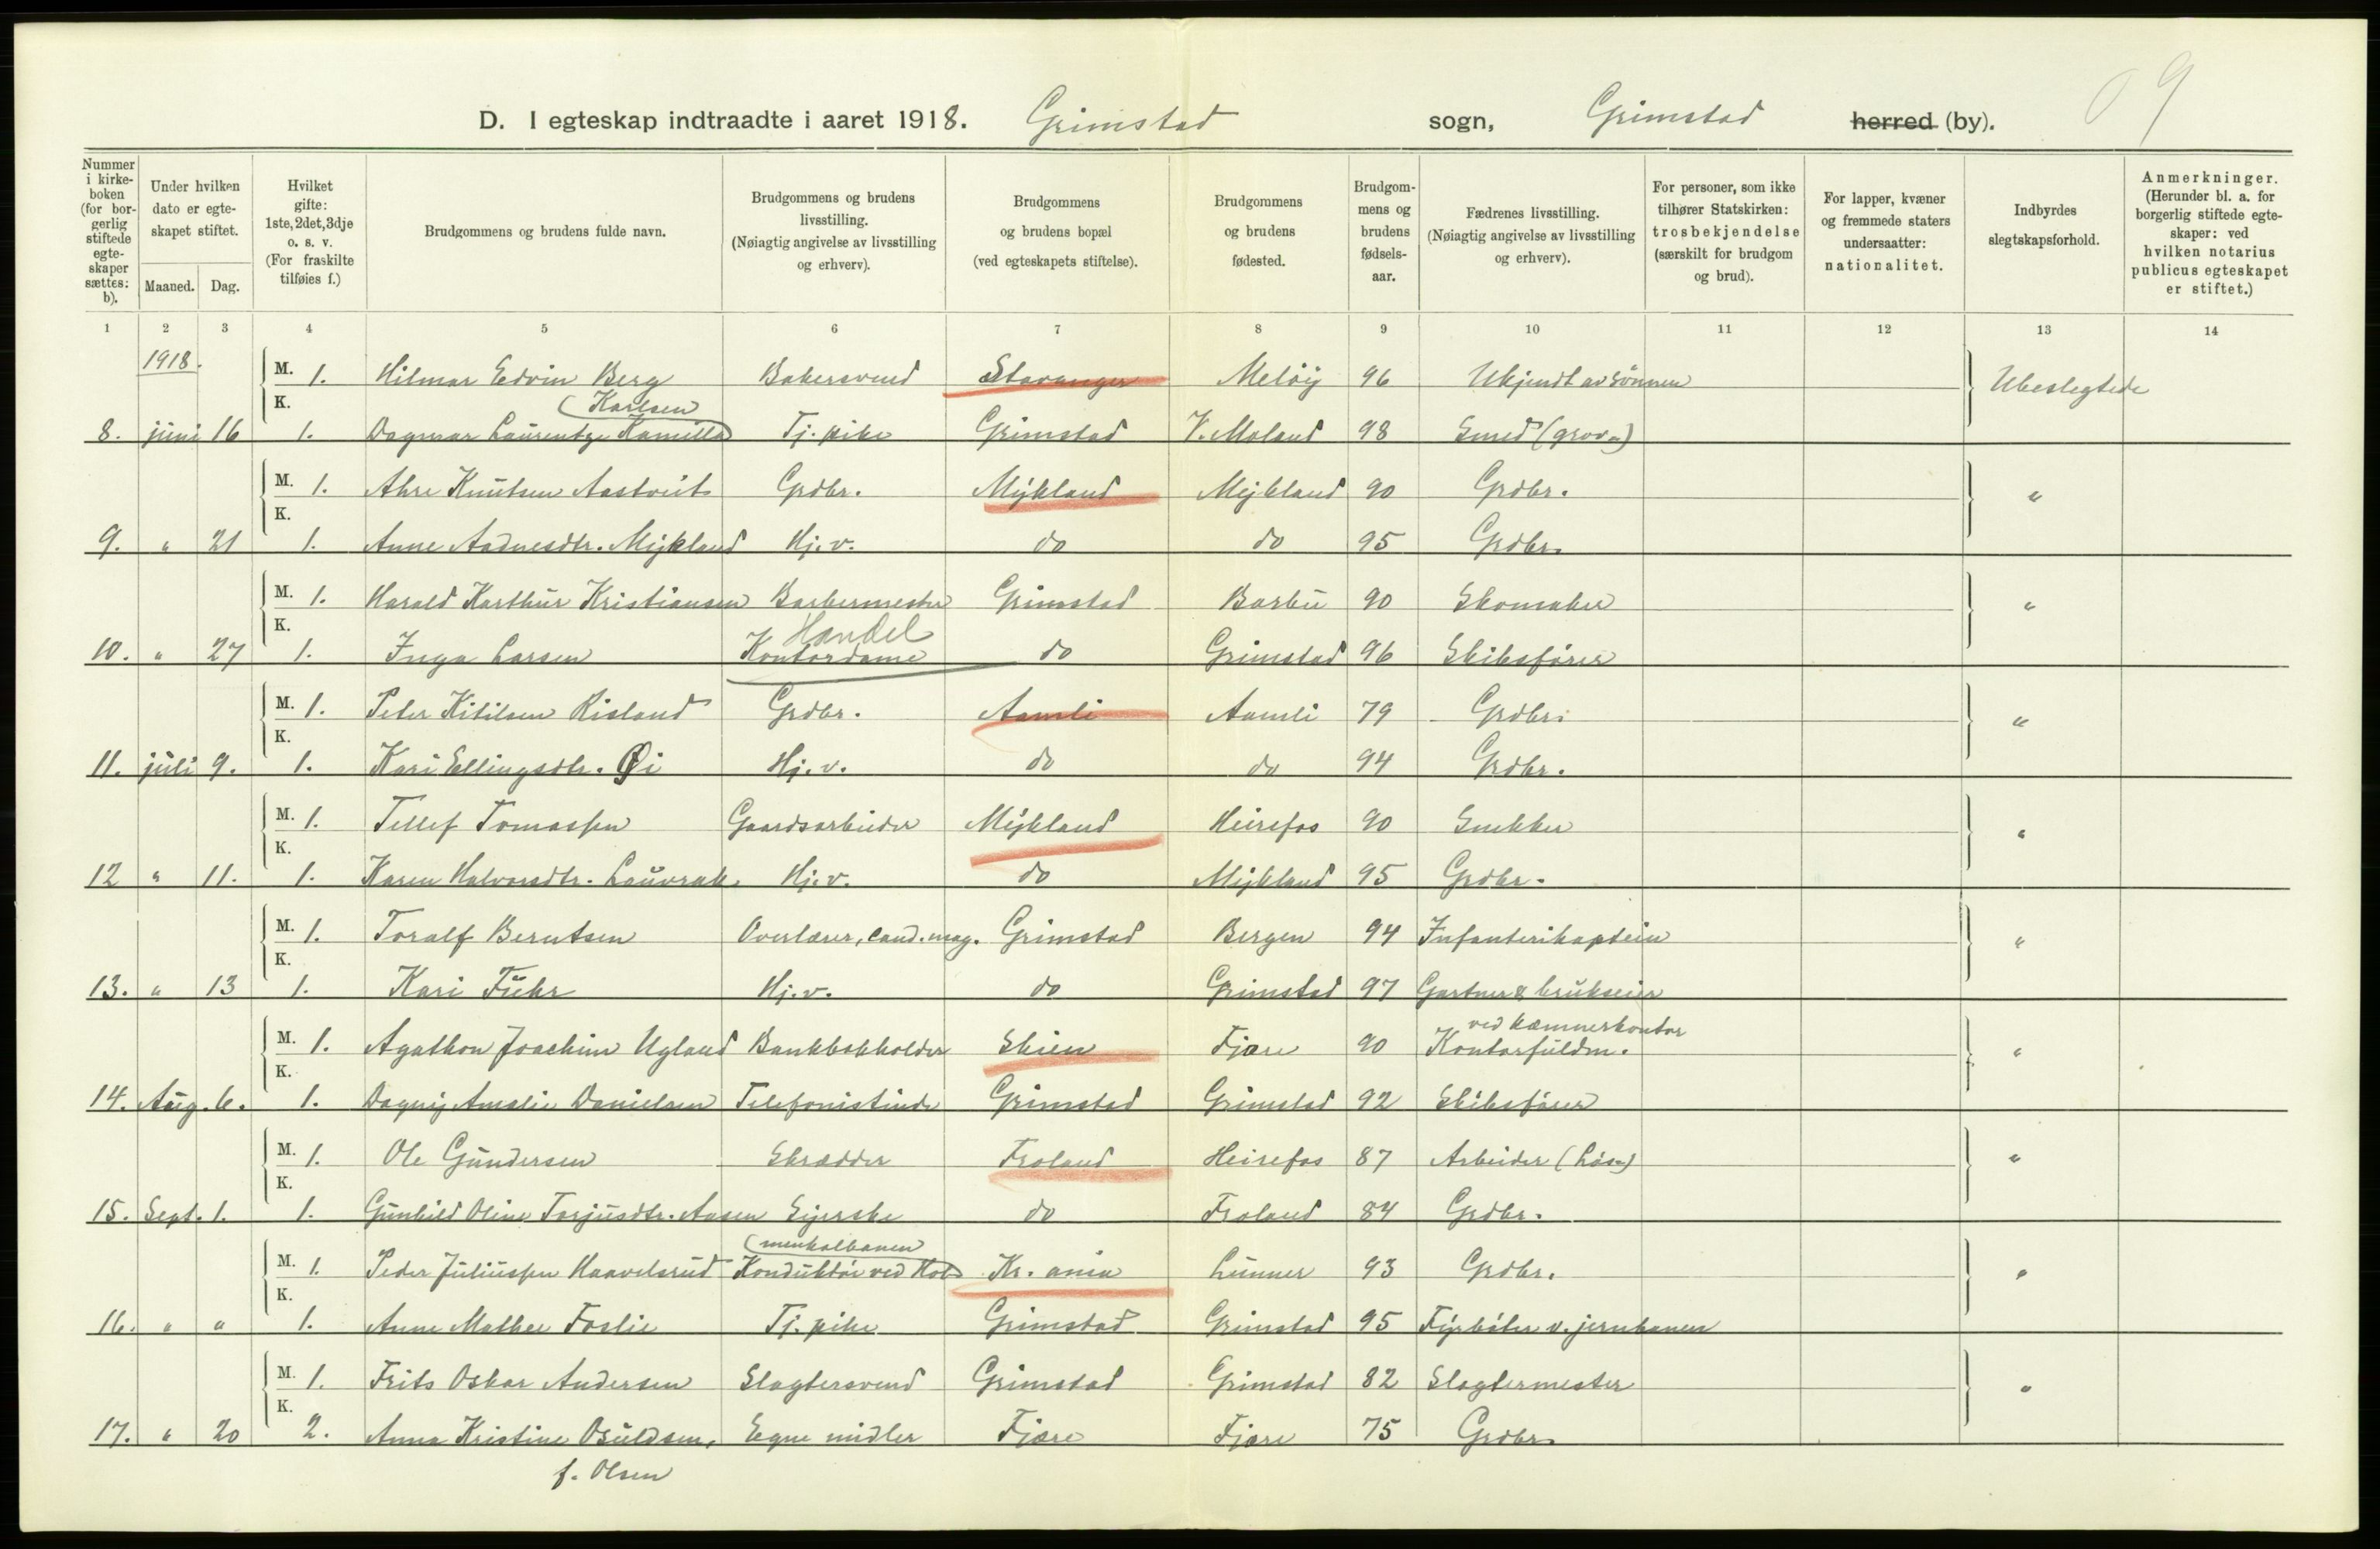 09
D. I egteskap indtraadte i aaret 1918. Grimstad sogn, Grimstad herred (by).
Nummer i kirkeboken (for borgerlig stiftede egteskaper sættes: b).
Under hvilken dato er egteskapet stiftet.
Maaned. Dag.
Hvilket gifte: 1ste, 2det, 3dje o. s. v. (For fraskilte tilføies f.)
Brudgommens og brudens fulde navn.
Brudgommens og brudens livsstilling. (Nøiagtig angivelse av livsstilling og erhverv).
Brudgommens og brudens bopæl (ved egteskapets stiftelse).
Brudgommens og brudens fødested.
Brudgommens og brudens fødselsaar.
Fædrenes livsstilling. (Nøiagtig angivelse av livsstilling og erhverv).
For personer, som ikke tilhører Statskirken: trosbekjendelse (særskilt for brudgom og brud).
For lapper, kvæner og fremmede staters undersaatter: nationalitet.
Indbyrdes slegtskapsforhold.
Anmerkninger. (Herunder bl. a. for borgerlig stiftede egteskaper: ved hvilken notarius publicus egteskapet er stiftet.)
1 2 3 4 5 6 7 8 9 10 11 12 13 14
1918.
M. 1. Hilmar Edvin Berg Bakersvend Stavanger Meløy 96 Ukjendt av sønnen Ubeslegtede
K. (Karlsen
8. juni 16 1. Dagmar Laurentze Kamilla Tj. pike Grimstad V. Moland 98 Smed (grov-)
M. 1. Ahre Knutsen Aastveit Grdbr. Mykland Mykland 90 Grdbr. "
K.
9. " 21 1. Anne Aadnesdtr. Mykland Hj.v. do do 95 Grdbr.
M. 1. Harald Karthur Kristiansen Barbermester Grimstad Barbu 90 Skomaker "
K. Handel
10. " 27 1. Inga Larsen Kontordame do Grimstad 96 Skibsfører
M. 1. Peter Kitilsen Risland Grdbr. Aamli Aamli 79 Grdbr. "
K.
11. juli 9. 1. Kari Ellingsdtr. Øi Hj.v. do do 94 Grdbr.
M. 1. Tellef Tomassen Gaardsarbeider Mykland Heirefos 90 Snekker "
K.
12 " 11. 1. Karen Halvorsdtr. Lauvrak. Hj.v. do Mykland 95 Grdbr.
M. 1. Toralf Berntsen Overlærer, cand. mag. Grimstad Bergen 94 Infanterikaptein "
K.
13. " 13 1. Kari Fuhr Hj.v. do Grimstad 97 Gartner & brukseier
ved kæmnerkontor
M. 1. Agathon Joachim Ugland Bankbokholder Skien Fjære 90 Kontorfuldm. "
K.
14. Aug. 6. 1. Dagny Amalie Danielsen Telefonistinde Grimstad Grimstad 92 Skibsfører
M. 1. Ole Gundersen Skrædder Froland Heirefos 87 Arbeider (løs-) "
K.
15. Sept. 1. 1. Gunhild Oline Torjusdtr. Aasen Syerske do Froland 84 Grdbr.
(menkolbanen
M. 1. Peder Juliussen Haavelsrud Konduktør ved Hol- Kr. ania Lunner 93 Grdbr. "
K.
16. " " 1. Anne Mathee Foslie Tj. pike Grimstad Grimstad 95 Fyrbøter v. jernbanen
M. 1. Frits Oskar Andersen Slagtersvend Grimstad Grimstad 82 Slagtermester "
K.
17. " 20 2. Anna Kristine Osuldsen, Egne midler Fjære Fjære 75 Grdbr.
f. Olsen